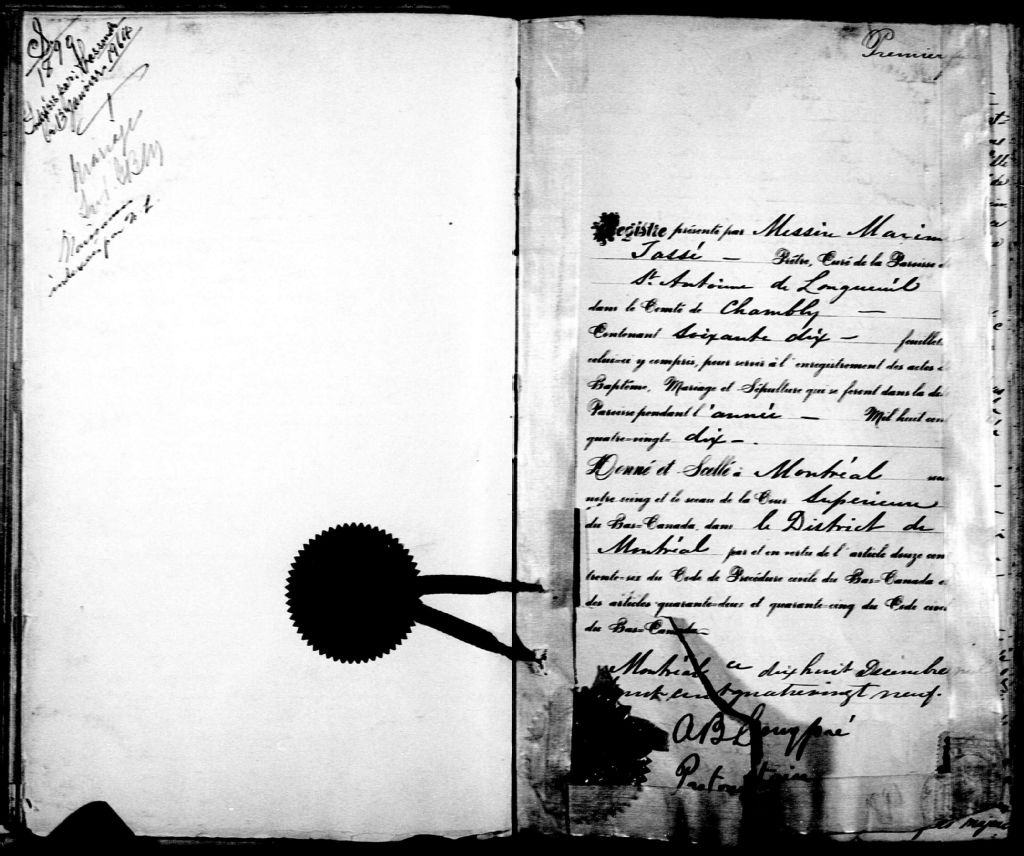 1899
Mariage
Premier
Registre présenté par Messire Maxim
Tassé — Prêtre, Curé de la Paroisse d
St. Antoine de Longueuil
dans le Comté de Chambly —
Contenant Soixante dix — feuillet
celui-ci y compris, pour servir à l'enregistrement des actes d
Baptême, Mariage et Sépulture qui se feront dans la di
Paroisse pendant l'année — Mil huit cen
quatre-vingt- dix — .
Donné et Scellé à Montréal sou
notre seing et le sceau de la Cour Superieure
du Bas-Canada, dans le District de
Montréal par et en vertu de l'article douze cen
trente-six du Code de Procédure civile du Bas-Canada e
des articles quarante-deux et quarante-cinq du Code civi
du Bas-Canada
Montréal ce dixhuit Decembre
huit cent quatrevingt neuf.
A B Longpré